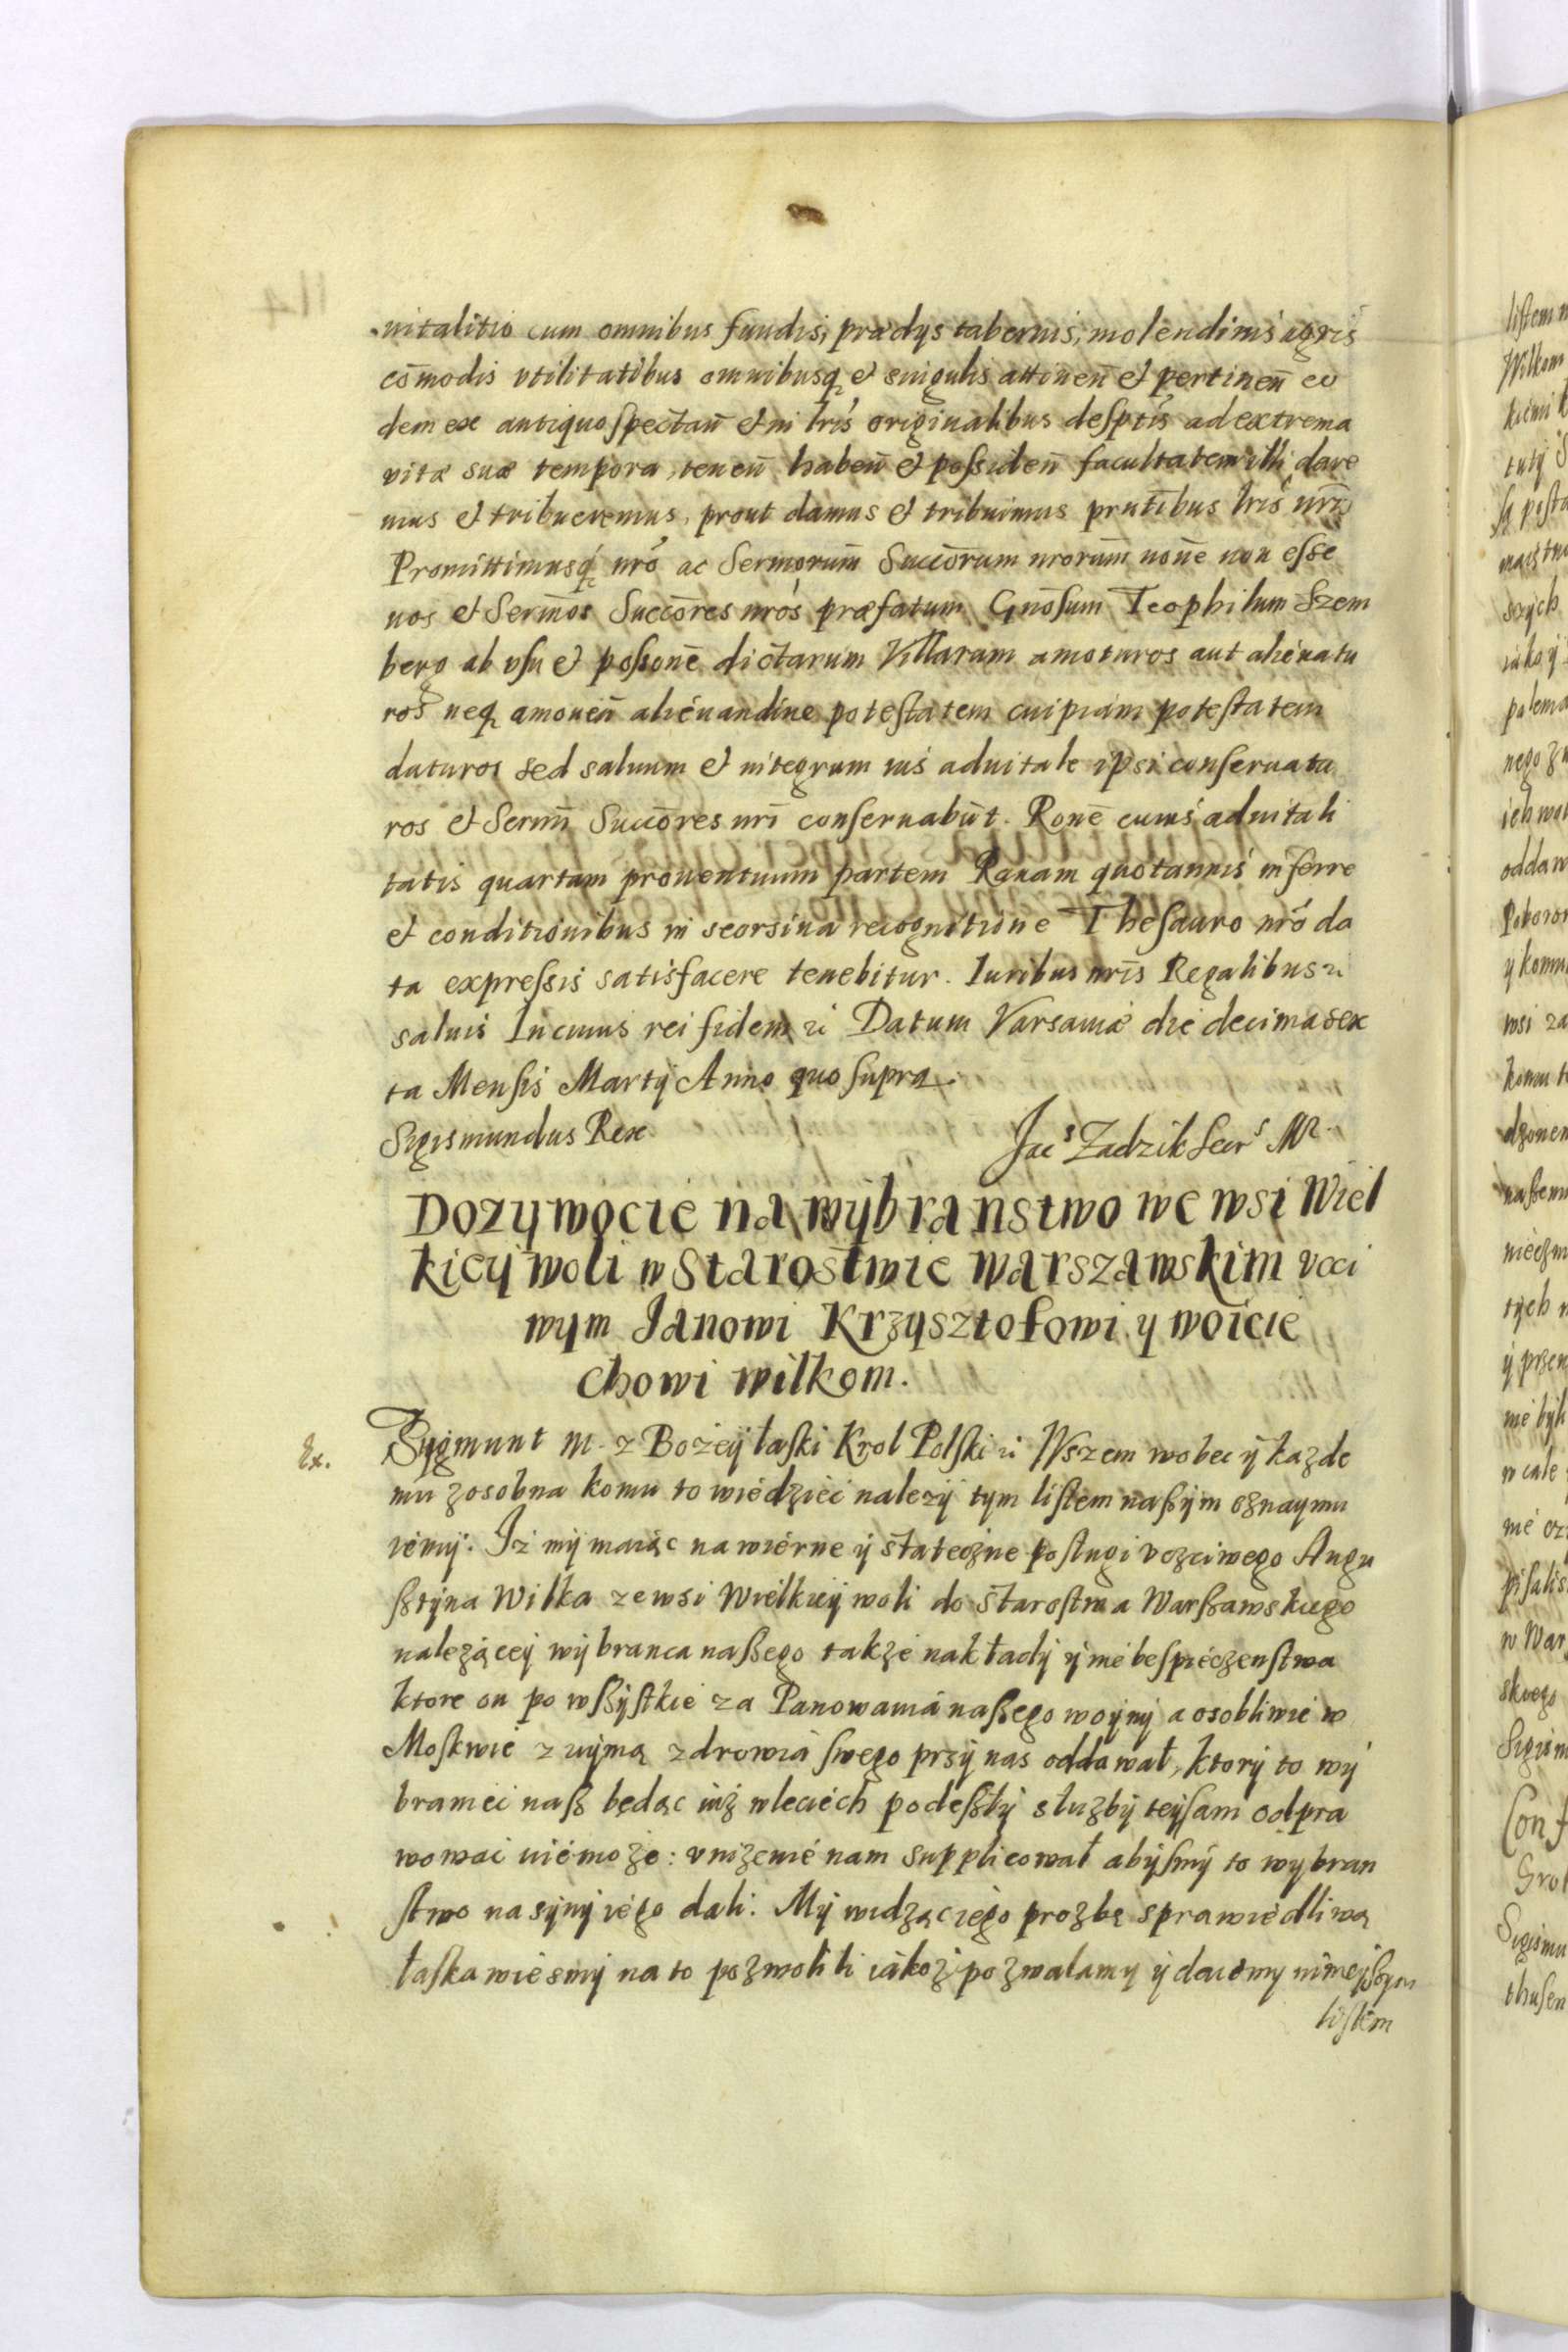 uitalitio cum omnibus fundis, prædys tabernis, molendinis agris
com̄odis vtilitatibus omnibusq, et singulis attinen̄ et pertinen̄ eo
dem ex antiquo spectan̄ et in lrīs originalibus desptīs ad extrema
vitæ suæ tempora, tenen̄ haben̄ et possiden̄ facultatem illi dare
mus et tribueremus, prout damus et tribuimus pn̄tibus lrīs nrīs
Promittimusq, nrō ac Sermorum̄ Succōrum nrorum̄ noīne non esse
nos et Serm̄os Succōres nrōs præfatum Gnōsum Teophilum Szem
berg ab vsu et possonē dictarum Villarum amoturos aut alienatu
ros neq, amouen̄ alienandiue potestatem cuipiam potestatem
daturos sed saluum et integrum ius aduitale ipsi conseruatu
ros et Serm̄i Succōres nrī conseruabūt. Ronē cuius aduitali
tatis quartam prouentuum partem Rauam quotannis inferre
et conditionibus in seorsiua recognitione Thesauro nrō da
ta expressis satisfacere tenebitur. Iuribus nrīs Regalibus 2i
saluis In cuius rei fidem 2i Datum Varsauiæ die decima sex
ta Mensis Martÿ Anno quo supra.
Sigismundus Rex
Jacˢ Zadzik Secrˢ Mr.
Dozywocie na wybranstwo we wsi Wiel
kiey woli w Starostwie warszawskim vcci
wym Janowi Krzysztofowi y woicie
chowi wilkom.
Ex.
Zygmunt III. z Bozeÿ łaski Krol Polski 2i Wszem wobec ÿ kazde
mu zosobna komu to wiedzieć nalezÿ tym listem naszÿm oznaymu
iemÿ. Iz mÿ maiąc na wierne ÿ stateczne posługi vczciwego Augu
sztÿna Wilka ze wsi Wielkieÿ woli do starostwa Warszawskiego
nalezącey wÿbranca naszego takze nakładÿ ÿ niebespieczenstwa
ktore on po wszÿstkie za Panowania naszego woÿnÿ a osobliwie w
Moskwie z vÿmą zdrowia swego przÿ nas oddawał, ktorÿ to wÿ
braniec nasz będąc iuz w leciech podeszłÿ słuzbÿ teÿ sam odpra
wowac nie moze: vnizenie nam supplicował abÿsmÿ to wÿbran
stwo na sÿnÿ iego dali. Mÿ widząc iego prozbę sprawiedliwą
łaskawiesmÿ na to pozwolili iakoz pozwalamy ÿ daiemy ninieÿszym
listem